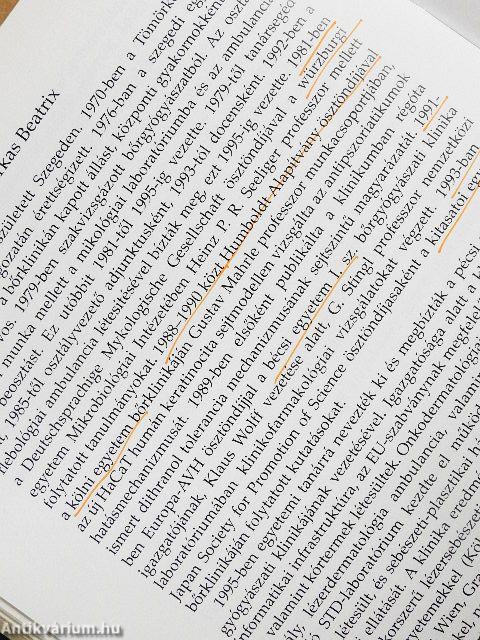 kas Beatrix
született Szegeden. 1970-ben a Tömörk
gozatán érettségizett. 1976-ban a szegedi eg
a bőrklinikán kapott állást központi gyakornokkén
vos. 1979-ben szakvizsgázott bőrgyógyászatból. Az oszt
munka mellett a mikológiai laboratóriumba és az ambulanciá
beosztást. Ez utóbbit 1981-től 1995-ig vezette. 1979-től tanársegéd
, 1985-től osztályvezető adjunktusként, 1993-tól docensként. 1992-ben a
flebológiai ambulancia létesítésével bízták meg, ezt 1995-ig vezette. 1981-ben
a Deutschsprachige Mykologische Gesellschaft ösztöndíjával a würzburgi
egyetem Mikrobiológiai Intézetében Heinz P. R. Seeliger professor mellett
folytatott tanulmányokat. 1988–1990 közt Humboldt-Alapítvány ösztöndíjával
a kölni egyetem bőrklinikáján Gustav Mahrle professzor munkacsoportjában,
az új HaCaT humán keratinocita sejtmodellen vizsgálta az antipszoriatikumok
hatásmechanizmusát. 1989-ben elsőként publikálta a klinikumban régóta
ismert dithranol tolerancia mechanizmusának sejtszintű magyarázatát. 1991-
ben Europa-AVH ösztöndíjjal a bécsi egyetem I. sz. bőrgyógyászati klinika
igazgatójának, Klaus Wolff vezetése alatt, G. Stingl professzor nemzetközi
laboratóriumában klinikofarmakológiai vizsgálatokat végzett. 1993-ban
Japan Society for Promotion of Science ösztöndíjasaként a kitasatoi egy
bőrklinikáján folytatott kutatásokat.
1995-ben egyetemi tanárrá nevezték ki és megbízták a pécsi
gyógyászati klinikájának vezetésével. Igazgatósága alatt a k
informatikai infrastruktúra, az EU-szabványnak megfelel
valamint kórtermek létesültek. Onkodermatológiai
ny, lézerdermatológia ambulancia, valamin
STD-laboratórium kezdte el működ
tesült, és sebészeti-plasztikai b
i ellátását. A klinika eredm
korszerű lézersebészet
etemekkel (Köl
Wien, Gra
Antikvárium.hu